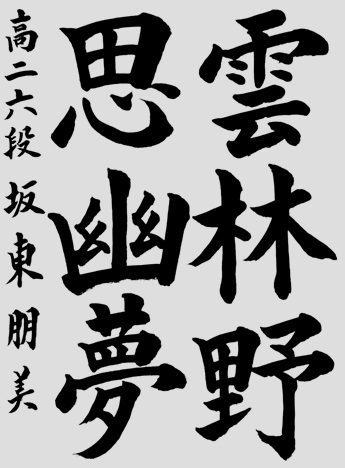 雲林野
思幽夢
高二六段坂東朋美